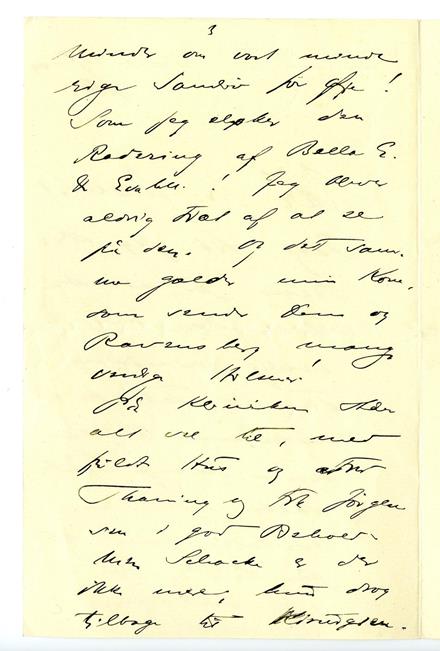 3
minder om vort minde
rige Samliv för Øje!
Som jeg elsker den
Radering af Bella E.
& Echte.! Jeg bliver
aldrig træt af at se
på den. Og det sam-
me gælder min Kone,
som sender Dem og
Ravensberg mange
venlige Hilsner!
På Kliniken står
alt vel til, med
fyldt Hus og
Thaning og Frk Jörgen
sen i god Behold.
Men Schacke er der
ikke mere, hun drog
tilbage til